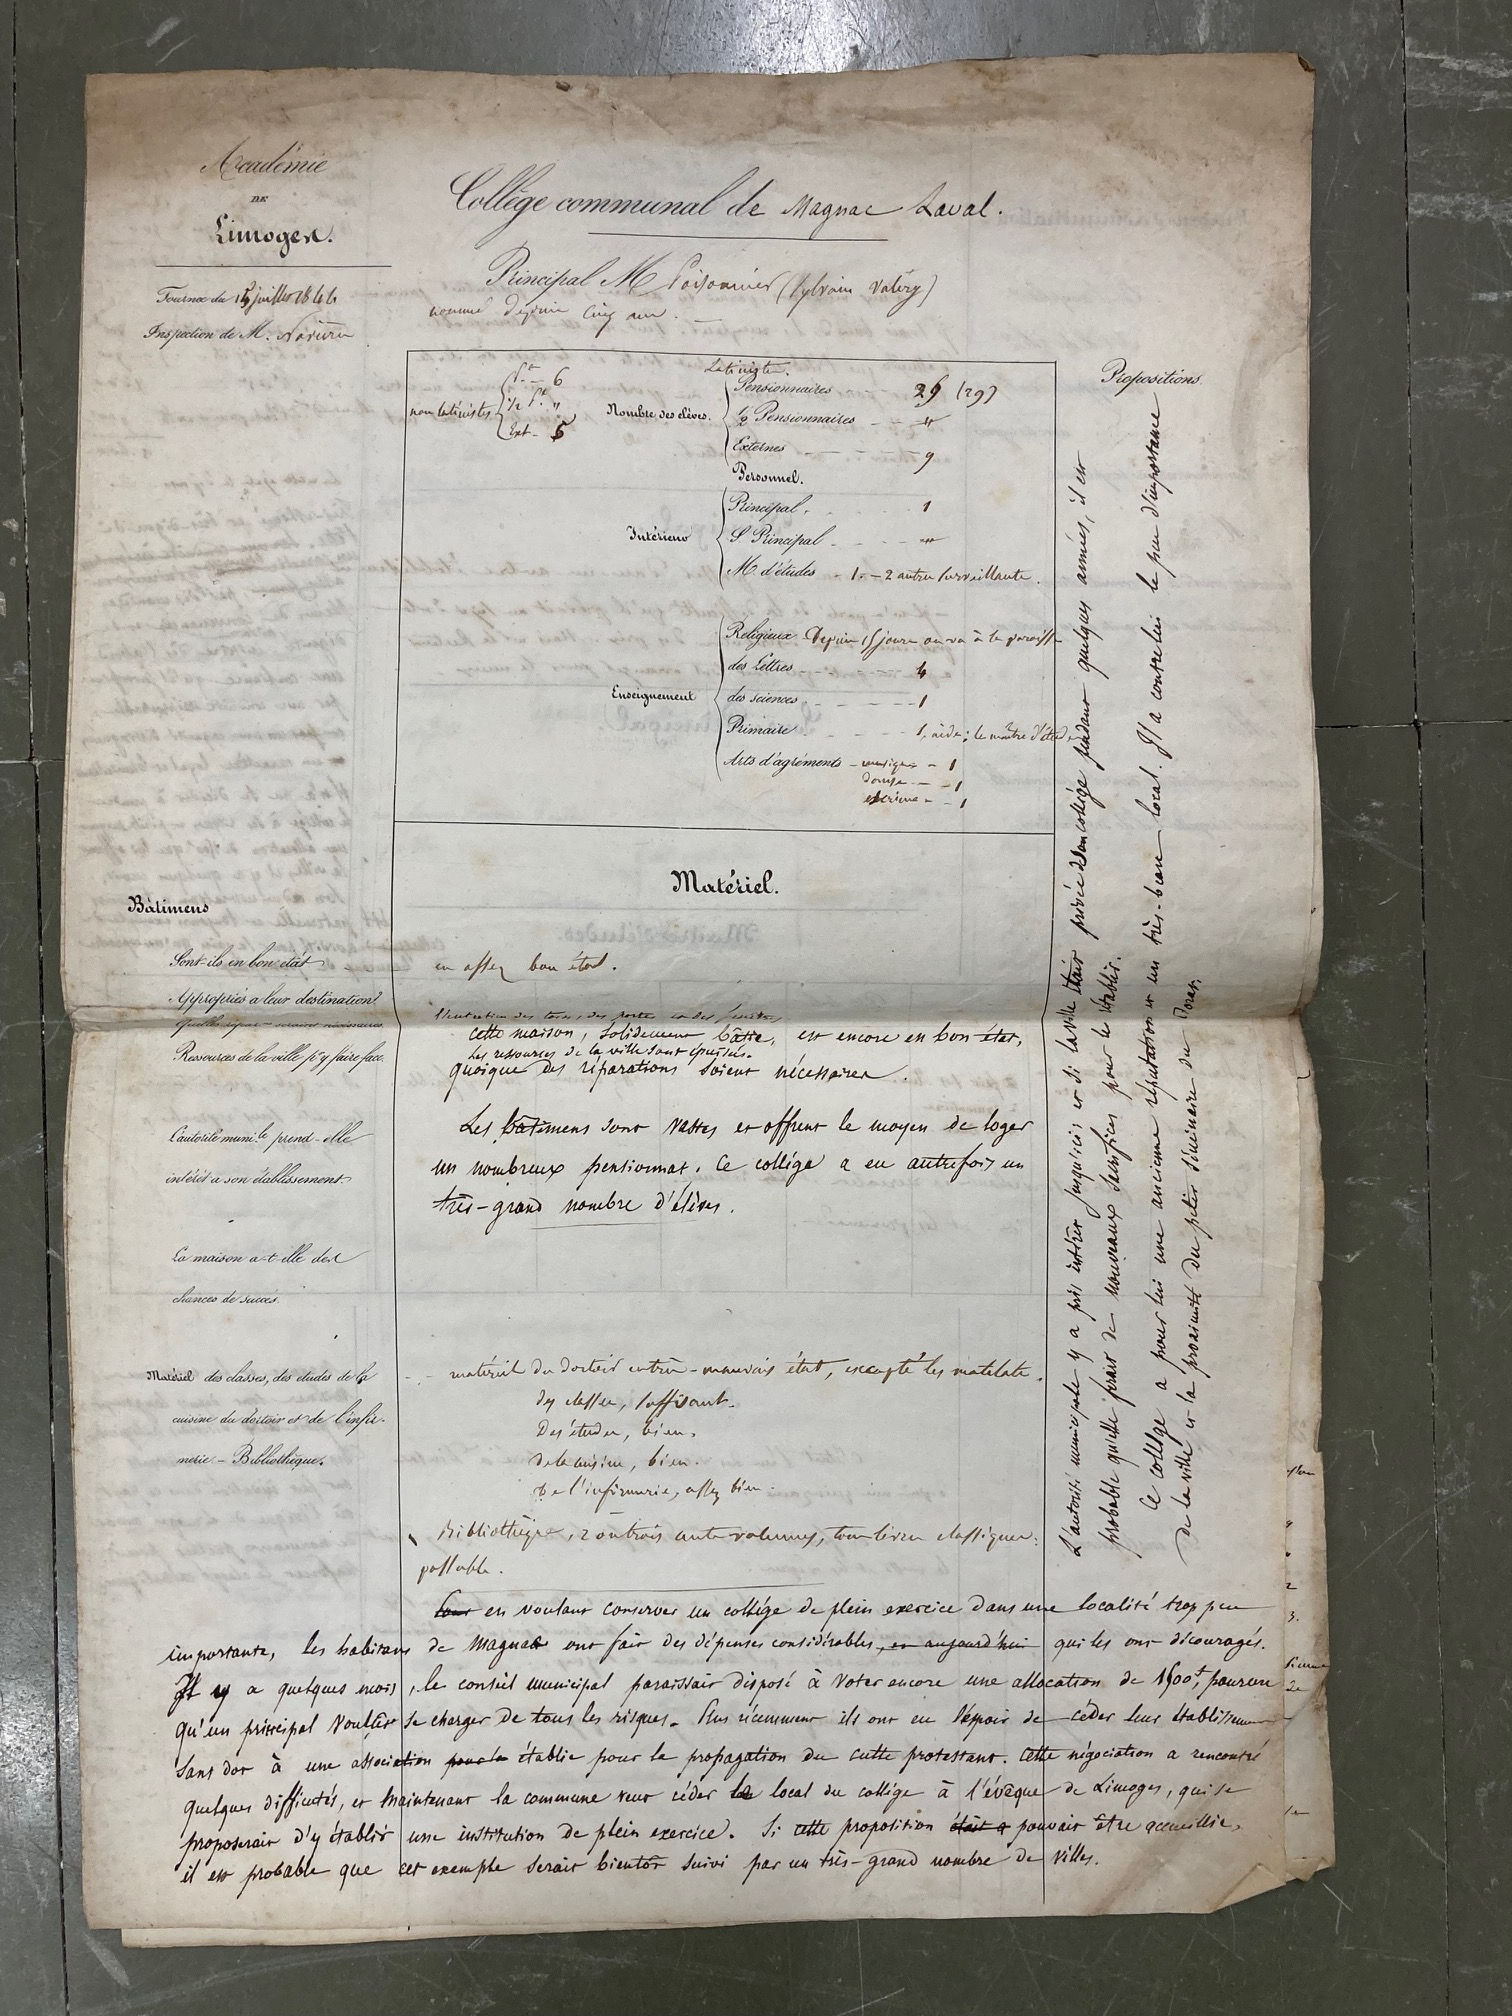 Académie
DE
Limoges.
Tournée du 15 juillet 1844
Inspection de M.
Collége communal de Magnac Laval.
Principal M (Sylvain Valéry)
nommé depuis cinq ans.
non latinistes
Pt. - 6
1/2 Pt. "
Ext - 5
Latinistes.
Nombre des éléves.
Pensionnaires 29 (29)
½ Pensionnaires - - "
Externes 9
Personnel.
Intérieur
Principal. 1
S. Principal "
M. d'études - 1. - 2 autres surveillants.
Enseignement
Religieux. Depuis 15 jours on va à la paroisse
des Lettres 4
des sciences 1
Primaire 1, aidé; le maître d'étude
Arts d'agréments - musique - 1
danse - 1
escrime - 1
Propositions.
Matériel.
Bâtimens
Sont-ils en bon état
en assez bon état.
Appropriés à leur destination?
Quelles répar^ons seraient nécessaires
Ressources de la ville p^r y faire face.
L'entretien des toits, des portes et des fenêtres
cette maison, solidement bâtie, est encore en bon état,
Les ressources de la ville sont épuisées.
quoique des réparations soient nécessaires.
L'autorité muni.le prend-elle
intérêt à son établissement
Les bâtimens sont vastes et offrent le moyen de loger
un nombreux pensionnat. Ce collége a eu autrefois un
très-grand nombre d'élèves.
La maison a-t-elle des
chances de succès.
Matériel des classes, des études de la
cuisine du dortoir et de l'infir-
merie. - Bibliothèque.
matériel du dortoir en très-mauvais état, excepté les matelats.
des classes, suffisant.
Des études, bien.
de la cuisine, bien.
de l'infirmerie, assez bien.
Bibliothèque, 2 ou trois cents volumes, tous livres classiques.
passable.
L'autorité municipale y a pris intérêt jusqu'ici et si la ville était privée de son collége pendant quelques années, il est
probable qu'elle ferait de nouveaux sacrifices pour le rétablir.
Ce collége a pour lui une ancienne réputation et un très-beau local. Il a contre lui le peu d'importance
de la ville et la proximité du petit séminaire du Dorat.
en voulant conserver un collége de plein exercice dans une localité trop peu
importante, les habitans de Magnac ont fait des dépenses considérables, et aujourd'hui qui les ont découragés.
Il y a quelques mois, le conseil municipal paraissait disposé à voter encore une allocation de 1500f, pourvu
qu'un principal voulût se charger de tous les risques. Plus récemment ils ont eu l'espoir de céder leur établissement
sans dot à une association pour la établie pour la propagation du culte protestant. Cette négociation a rencontré
quelques difficultés, et maintenant la commune veut céder le local du collége à l'évêque de Limoges, qui se
proposerait d'y établir une institution de plein exercice. Si cette proposition était a pouvait être accueillie,
il est probable que cet exemple serait bientôt suivi par un très-grand nombre de villes.